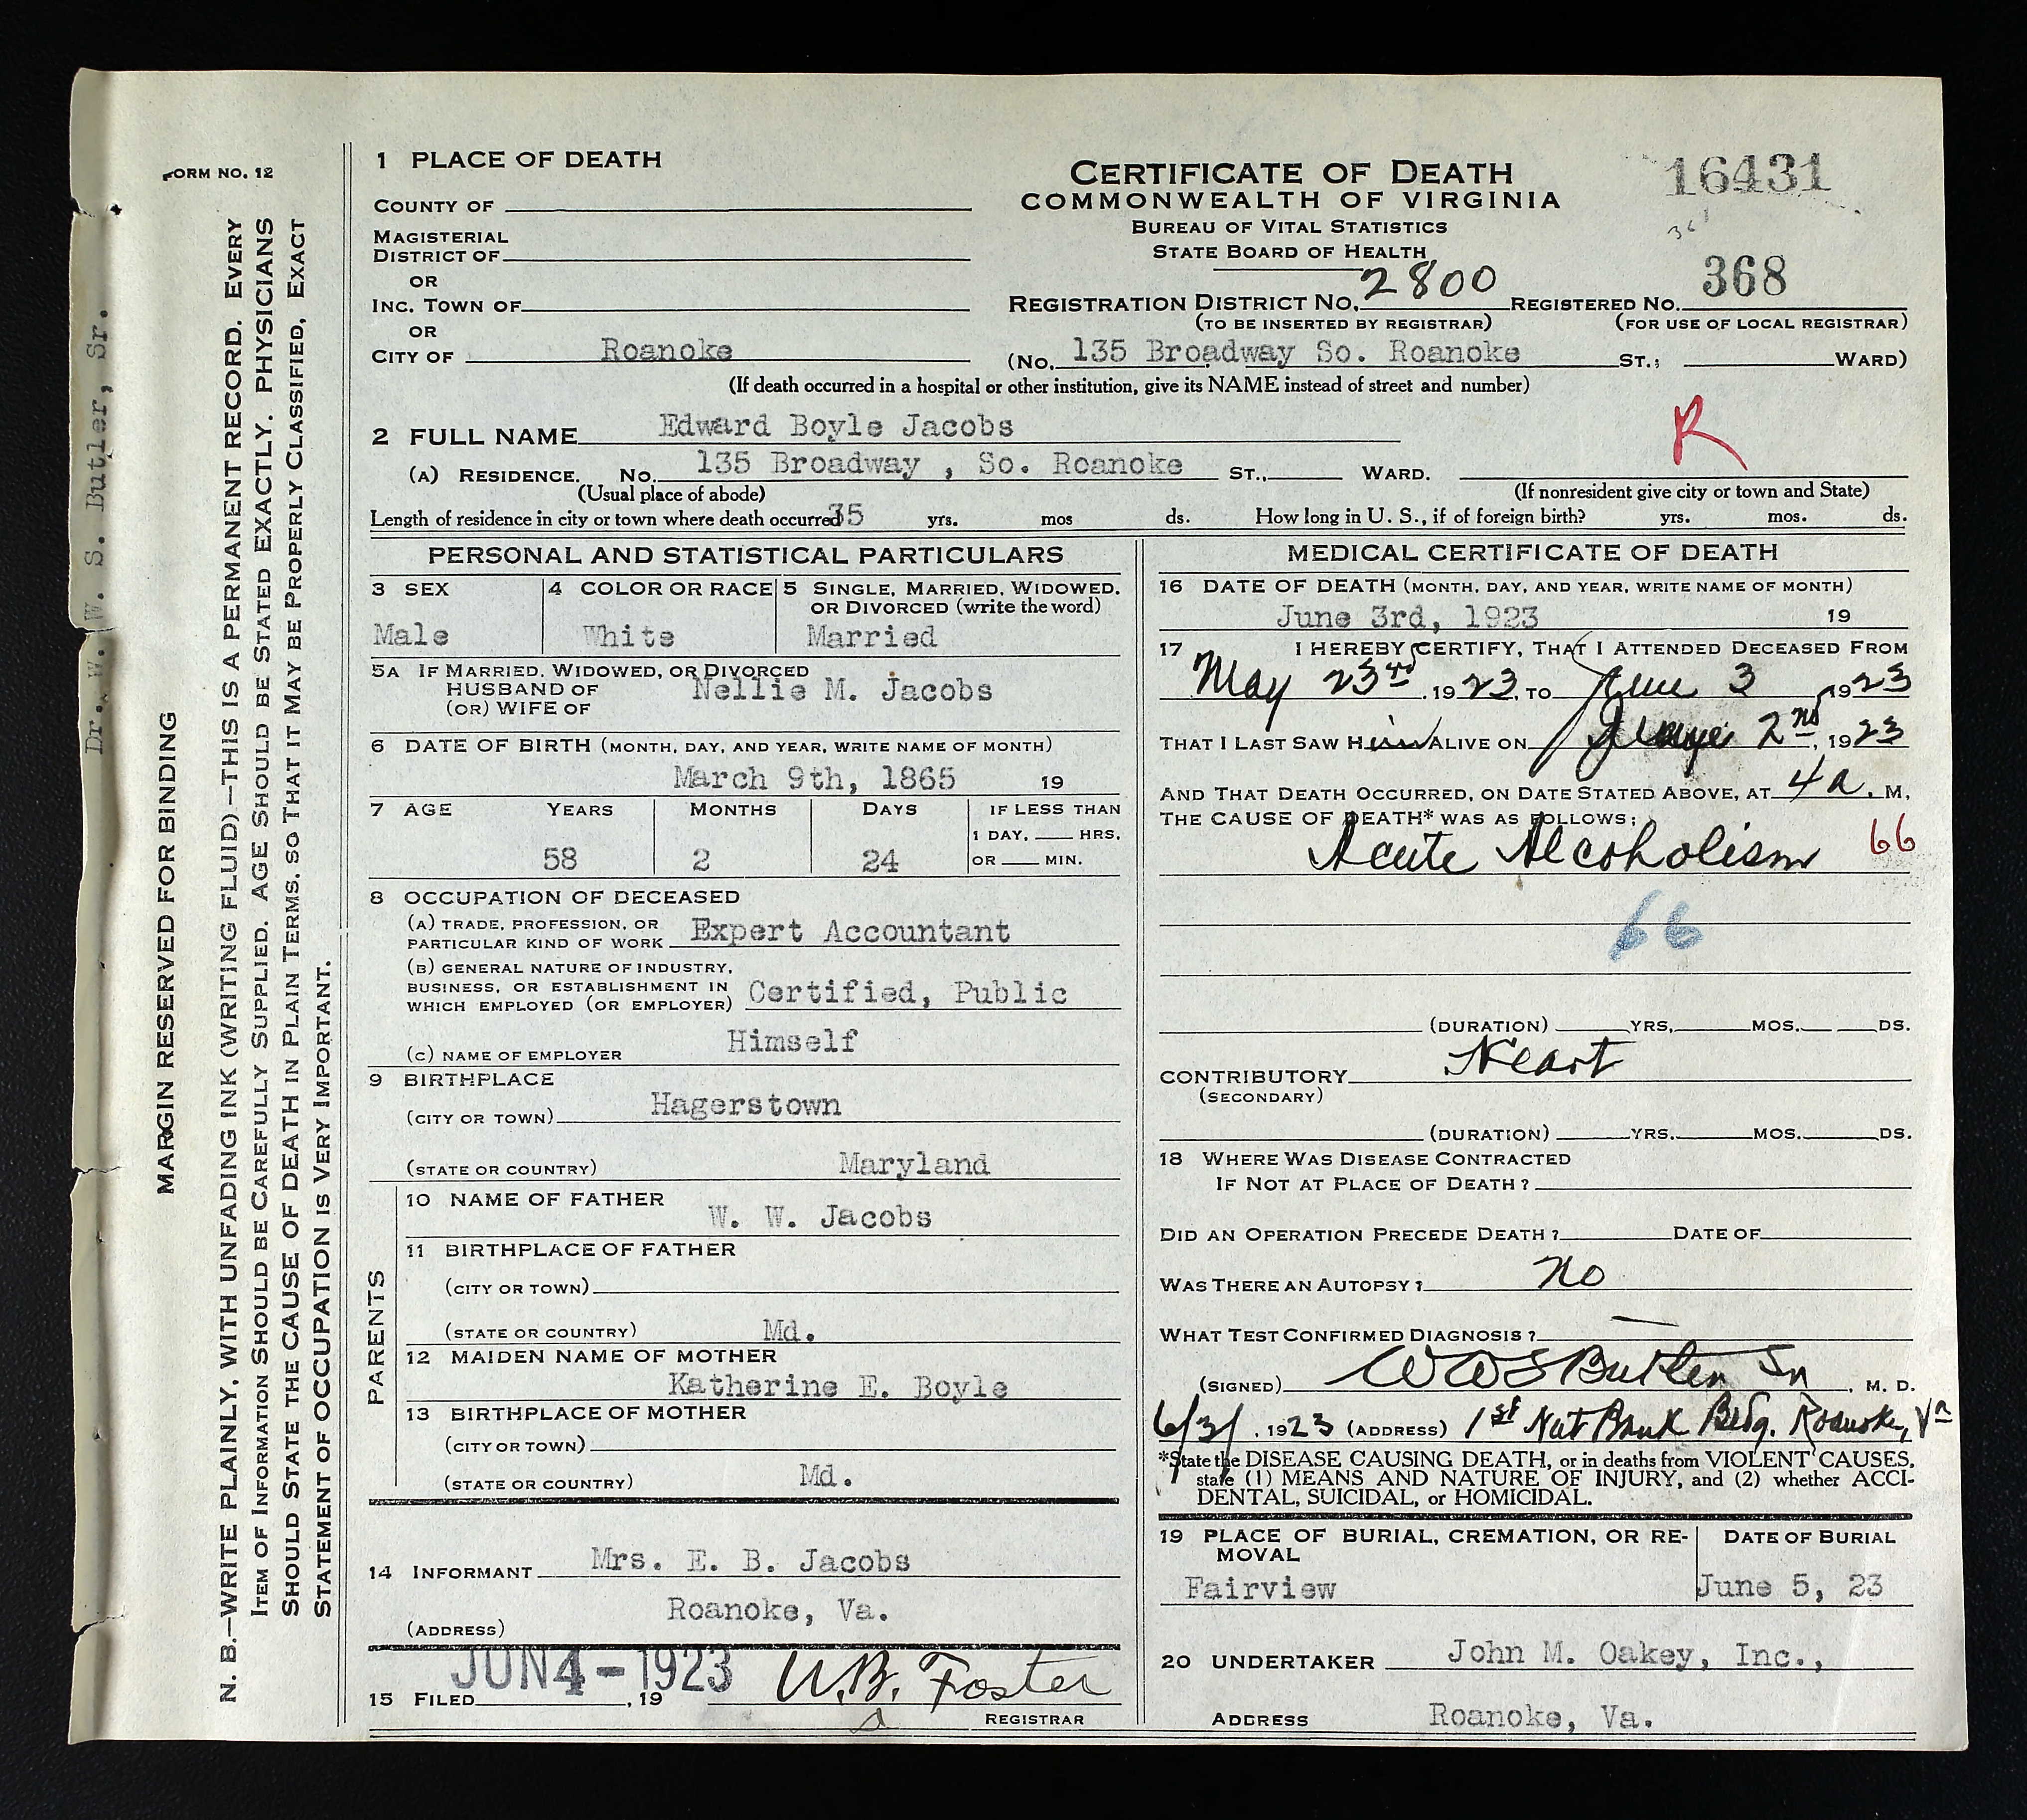 FORM NO. 12
MARGIN RESERVED FOR BINDING
N. B.—WRITE PLAINLY, WITH UNFADING INK (WRITING FLUID)—THIS IS A PERMANENT RECORD. EVERY
ITEM OF INFORMATION SHOULD BE CAREFULLY SUPPLIED. AGE SHOULD BE STATED EXACTLY. PHYSICIANS
SHOULD STATE THE CAUSE OF DEATH IN PLAIN TERMS, SO THAT IT MAY BE PROPERLY CLASSIFIED. EXACT
STATEMENT OF OCCUPATION IS VERY IMPORTANT.
Dr. W. W. S. Butler, Sr.
1 PLACE OF DEATH
COUNTY OF
MAGISTERIAL
DISTRICT OF
OR
INC. TOWN OF
OR
CITY OF Roanoke
CERTIFICATE OF DEATH
COMMONWEALTH OF VIRGINIA
BUREAU OF VITAL STATISTICS
STATE BOARD OF HEALTH
16431
REGISTRATION DISTRICT NO. 2800 REGISTERED NO. 368
(TO BE INSERTED BY REGISTRAR) (FOR USE OF LOCAL REGISTRAR)
(No. 135 Broadway So. Roanoke ST.; WARD)
(If death occurred in a hospital or other institution, give its NAME instead of street and number)
2 FULL NAME Edward Boyle Jacobs
R
(A) RESIDENCE. No. 135 Broadway , So. Roanoke ST., WARD.
(Usual place of abode) (If nonresident give city or town and State)
Length of residence in city or town where death occurred 35 yrs. mos ds. How long in U. S., if of foreign birth? yrs. mos. ds.
PERSONAL AND STATISTICAL PARTICULARS
3 SEX 4 COLOR OR RACE 5 SINGLE, MARRIED, WIDOWED,
OR DIVORCED (write the word)
Male White Married
5A IF MARRIED, WIDOWED, OR DIVORCED
HUSBAND OF Nellie M. Jacobs
(OR) WIFE OF
6 DATE OF BIRTH (MONTH, DAY, AND YEAR, WRITE NAME OF MONTH)
March 9th, 1865 19
7 AGE YEARS MONTHS DAYS IF LESS THAN
1 DAY, HRS.
58 2 24 OR MIN.
8 OCCUPATION OF DECEASED
(A) TRADE, PROFESSION, OR
PARTICULAR KIND OF WORK Expert Accountant
(B) GENERAL NATURE OF INDUSTRY,
BUSINESS, OR ESTABLISHMENT IN
WHICH EMPLOYED (OR EMPLOYER) Certified, Public
(C) NAME OF EMPLOYER Himself
9 BIRTHPLACE
(CITY OR TOWN) Hagerstown
(STATE OR COUNTRY) Maryland
PARENTS
10 NAME OF FATHER W. W. Jacobs
11 BIRTHPLACE OF FATHER
(CITY OR TOWN)
(STATE OR COUNTRY) Md.
12 MAIDEN NAME OF MOTHER
Katherine E. Boyle
13 BIRTHPLACE OF MOTHER
(CITY OR TOWN)
(STATE OR COUNTRY) Md.
14 INFORMANT Mrs. E. B. Jacobs
(ADDRESS) Roanoke, Va.
15 FILED JUN 4 - 1923 , 19 W.B. Foster
REGISTRAR
MEDICAL CERTIFICATE OF DEATH
16 DATE OF DEATH (MONTH, DAY, AND YEAR, WRITE NAME OF MONTH)
June 3rd, 1923 19
17 I HEREBY CERTIFY, THAT I ATTENDED DECEASED FROM
May 23rd, 1923, TO June 3 1923
THAT I LAST SAW Him ALIVE ON June 2nd, 1923
AND THAT DEATH OCCURRED, ON DATE STATED ABOVE, AT 4 a. M.
THE CAUSE OF DEATH* WAS AS FOLLOWS:
Acute Alcoholism 66
66
(DURATION) YRS. MOS. DS.
CONTRIBUTORY Heart
(SECONDARY)
(DURATION) YRS. MOS. DS.
18 WHERE WAS DISEASE CONTRACTED
IF NOT AT PLACE OF DEATH?
DID AN OPERATION PRECEDE DEATH? DATE OF
WAS THERE AN AUTOPSY? No
WHAT TEST CONFIRMED DIAGNOSIS? —
(SIGNED) WWS Butler Jr, M. D.
6/3/, 1923 (ADDRESS) 1st Nat Bank Bldg. Roanoke, Va
*State the DISEASE CAUSING DEATH, or in deaths from VIOLENT CAUSES,
state (1) MEANS AND NATURE OF INJURY, and (2) whether ACCI-
DENTAL, SUICIDAL, or HOMICIDAL.
19 PLACE OF BURIAL, CREMATION, OR RE- DATE OF BURIAL
MOVAL
Fairview June 5, 23
20 UNDERTAKER John M. Oakey, Inc.,
ADDRESS Roanoke, Va.